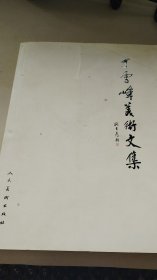 于雪峰美術文集
人民美术出版社